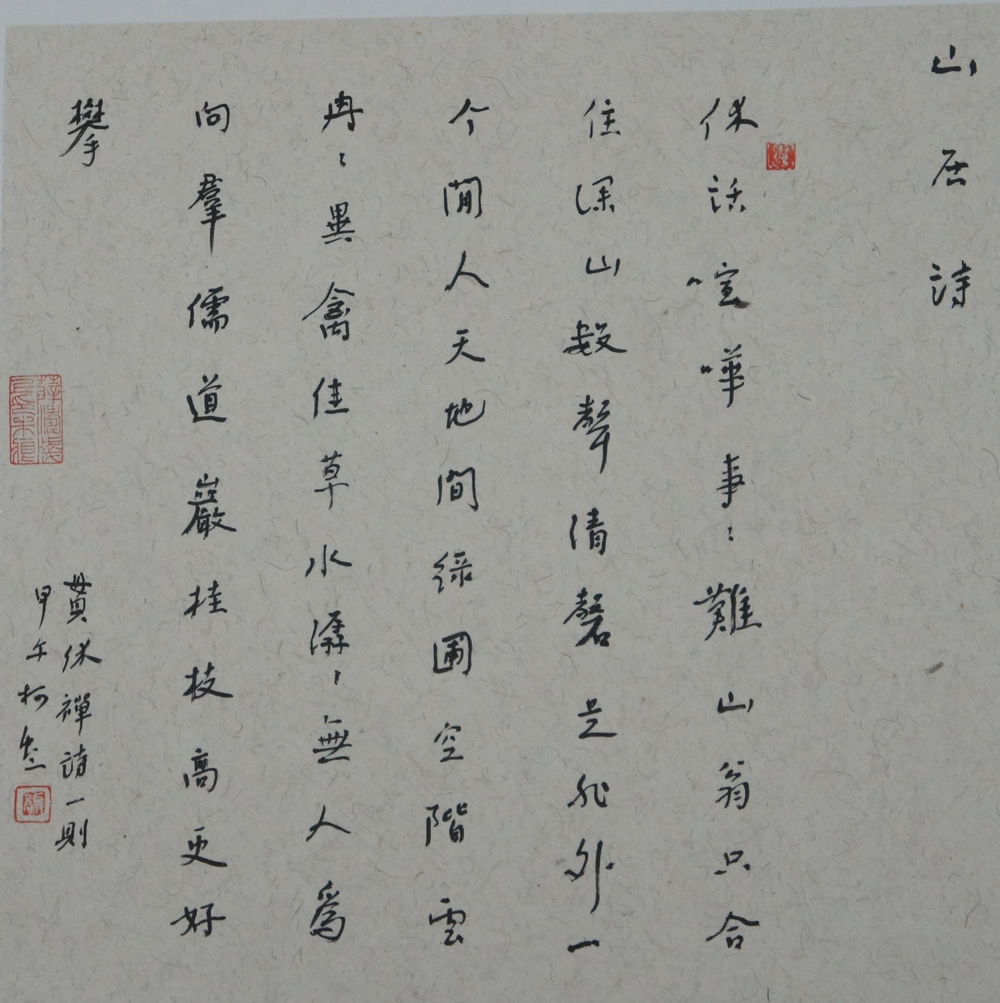 山居詩
休話喧嘩事〻難山翁只合
住深山數聲清磬是非外一
个閒人天地間綠圃空階雲
冉〻異禽佳草水潺〻無人爲
向羣儒道巖桂枝高更好
攀
貫休禪詩一則
甲午柯